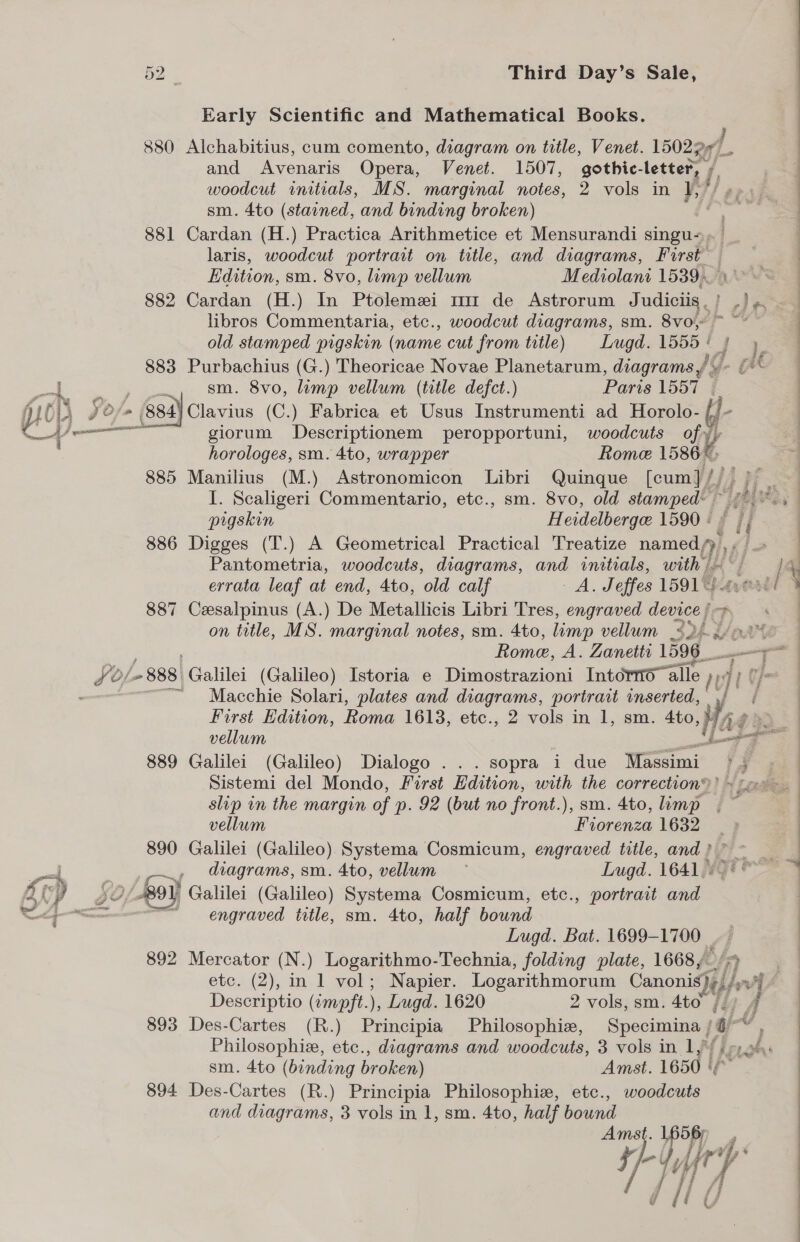 52 Third Day's Sale,
Early Scientific and Mathematical Books.
880 Alchabitius, cum comento, diagram on title, Venet. 1502
and Avenaris Opera, Venet. 1507, gothic-letter,
woodcut initials, MS. marginal notes, 2 vols in 1,
sm. 4to (stained, and binding broken)
881 Cardan (H.) Practica Arithmetice et Mensurandi singu-
laris, woodcut portrait on title, and diagrams, First
Edition, sm. 8vo, limp vellum Mediolani 1539
882 Cardan (H.) In Ptolemæi IIII de Astrorum Judiciis,
libros Commentaria, etc., woodcut diagrams, sm. 8vo,
old stamped pigskin (name cut from title) Lugd. 1555
883 Purbachius (G.) Theoricae Novae Planetarum, diagrams,
sm. 8vo, limp vellum (title defct.) Paris 1557
884 Clavius (C.) Fabrica et Usus Instrumenti ad Horolo-
giorum Descriptionem peropportuni, woodcuts of
horologes, sm. 4to, wrapper Romæ 1586
885 Manilius (M.) Astronomicon Libri Quinque [cum]
I. Scaligeri Commentario, etc., sm. 8vo, old stamped
pigskin Heidelbergæ 1590
886 Digges (T.) A Geometrical Practical Treatize named
Pantometria, woodcuts, diagrams, and initials, with
errata leaf at end, 4to, old calf A. Jeffes 1591
887 Cæsalpinus (A.) De Metallicis Libri Tres, engraved device
on title, MS. marginal notes, sm. 4to, limp vellum
Romæ, A. Zanetti 1596
888 Galilei (Galileo) Istoria e Dimostrazioni Intorno alle
Macchie Solari, plates and diagrams, portrait inserted,
First Edition, Roma 1613, etc., 2 vols in 1, sm. 4to,
vellum
889 Galilei (Galileo) Dialogo . . . sopra i due Massimi
Sistemi del Mondo, First Edition, with the correction
slip in the margin of p. 92 (but no front.), sm. 4to, limp
vellum Fiorenza 1632
890 Galilei (Galileo) Systema Cosmicum, engraved title, and
diagrams, sm. 4to, vellum Lugd. 1641
891 Galilei (Galileo) Systema Cosmicum, etc., portrait and
engraved title, sm. 4to, half bound
Lugd. Bat. 1699-1700
892 Mercator (N.) Logarithmo-Technia, folding plate, 1668,
etc. (2), in 1 vol; Napier. Logarithmorum Canonis
Descriptio (impft.), Lugd. 1620 2 vols, sm. 4to
893 Des-Cartes (R.) Principia Philosophiæ, Specimina
Philosophiæ, etc., diagrams and woodcuts, 3 vols in 1,
sm. 4to (binding broken) Amst. 1650
894 Des-Cartes (R.) Principia Philosophiæ, etc., woodcuts
and diagrams, 3 vols in 1, sm. 4to, half bound
Amst. 1656